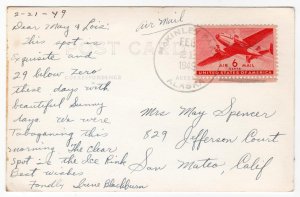 2-21-49
Air Mail
Dear May & Lois:
This spot is
Exquisite and
29 below Zero
These days with
beautiful Sunny
days. We were
Tobaganing this
morning. The Clear
Spot is the Ice Rink
Best wishes
Fondly, Irene Blackburn
McKINLEY
FEB
1949
ALASKA
AIR 6¢ MAIL
UNITED STATES OF AMERICA
Mrs May Spencer
829 Jefferson Court
San Mateo, Calif